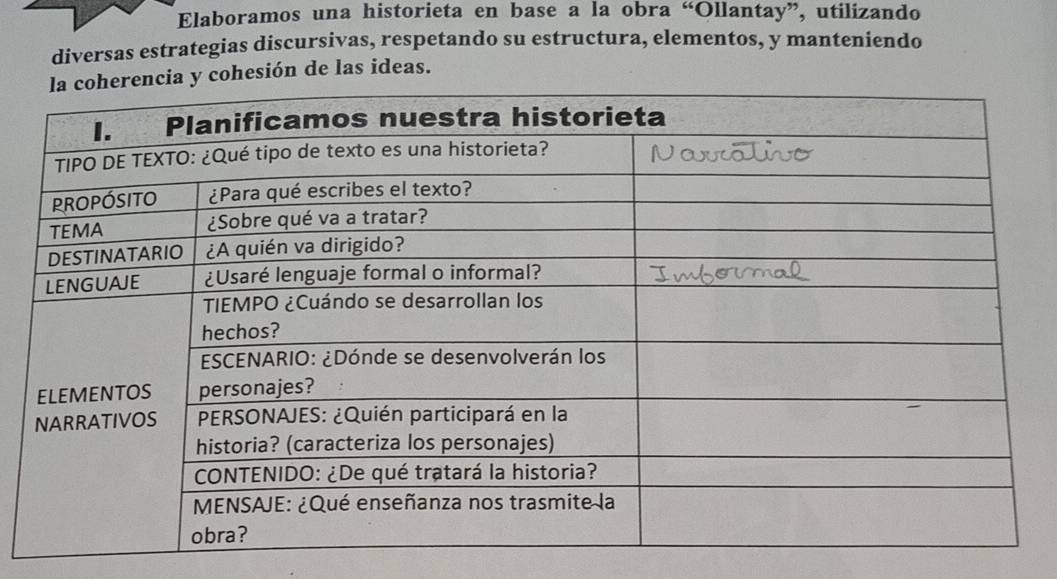 Elaboramos una historieta en base a la obra “Ollantay”, utilizando
diversas estrategias discursivas, respetando su estructura, elementos, y manteniendo
la coherencia y cohesión de las ideas.
I. Planificamos nuestra historieta
TIPO DE TEXTO: ¿Qué tipo de texto es una historieta? Narrativo
PROPÓSITO ¿Para qué escribes el texto?
TEMA ¿Sobre qué va a tratar?
DESTINATARIO ¿A quién va dirigido?
LENGUAJE ¿Usaré lenguaje formal o informal? Informal
TIEMPO ¿Cuándo se desarrollan los
hechos?
ESCENARIO: ¿Dónde se desenvolverán los
ELEMENTOS personajes?
NARRATIVOS PERSONAJES: ¿Quién participará en la
historia? (caracteriza los personajes)
CONTENIDO: ¿De qué tratará la historia?
MENSAJE: ¿Qué enseñanza nos trasmite la
obra?